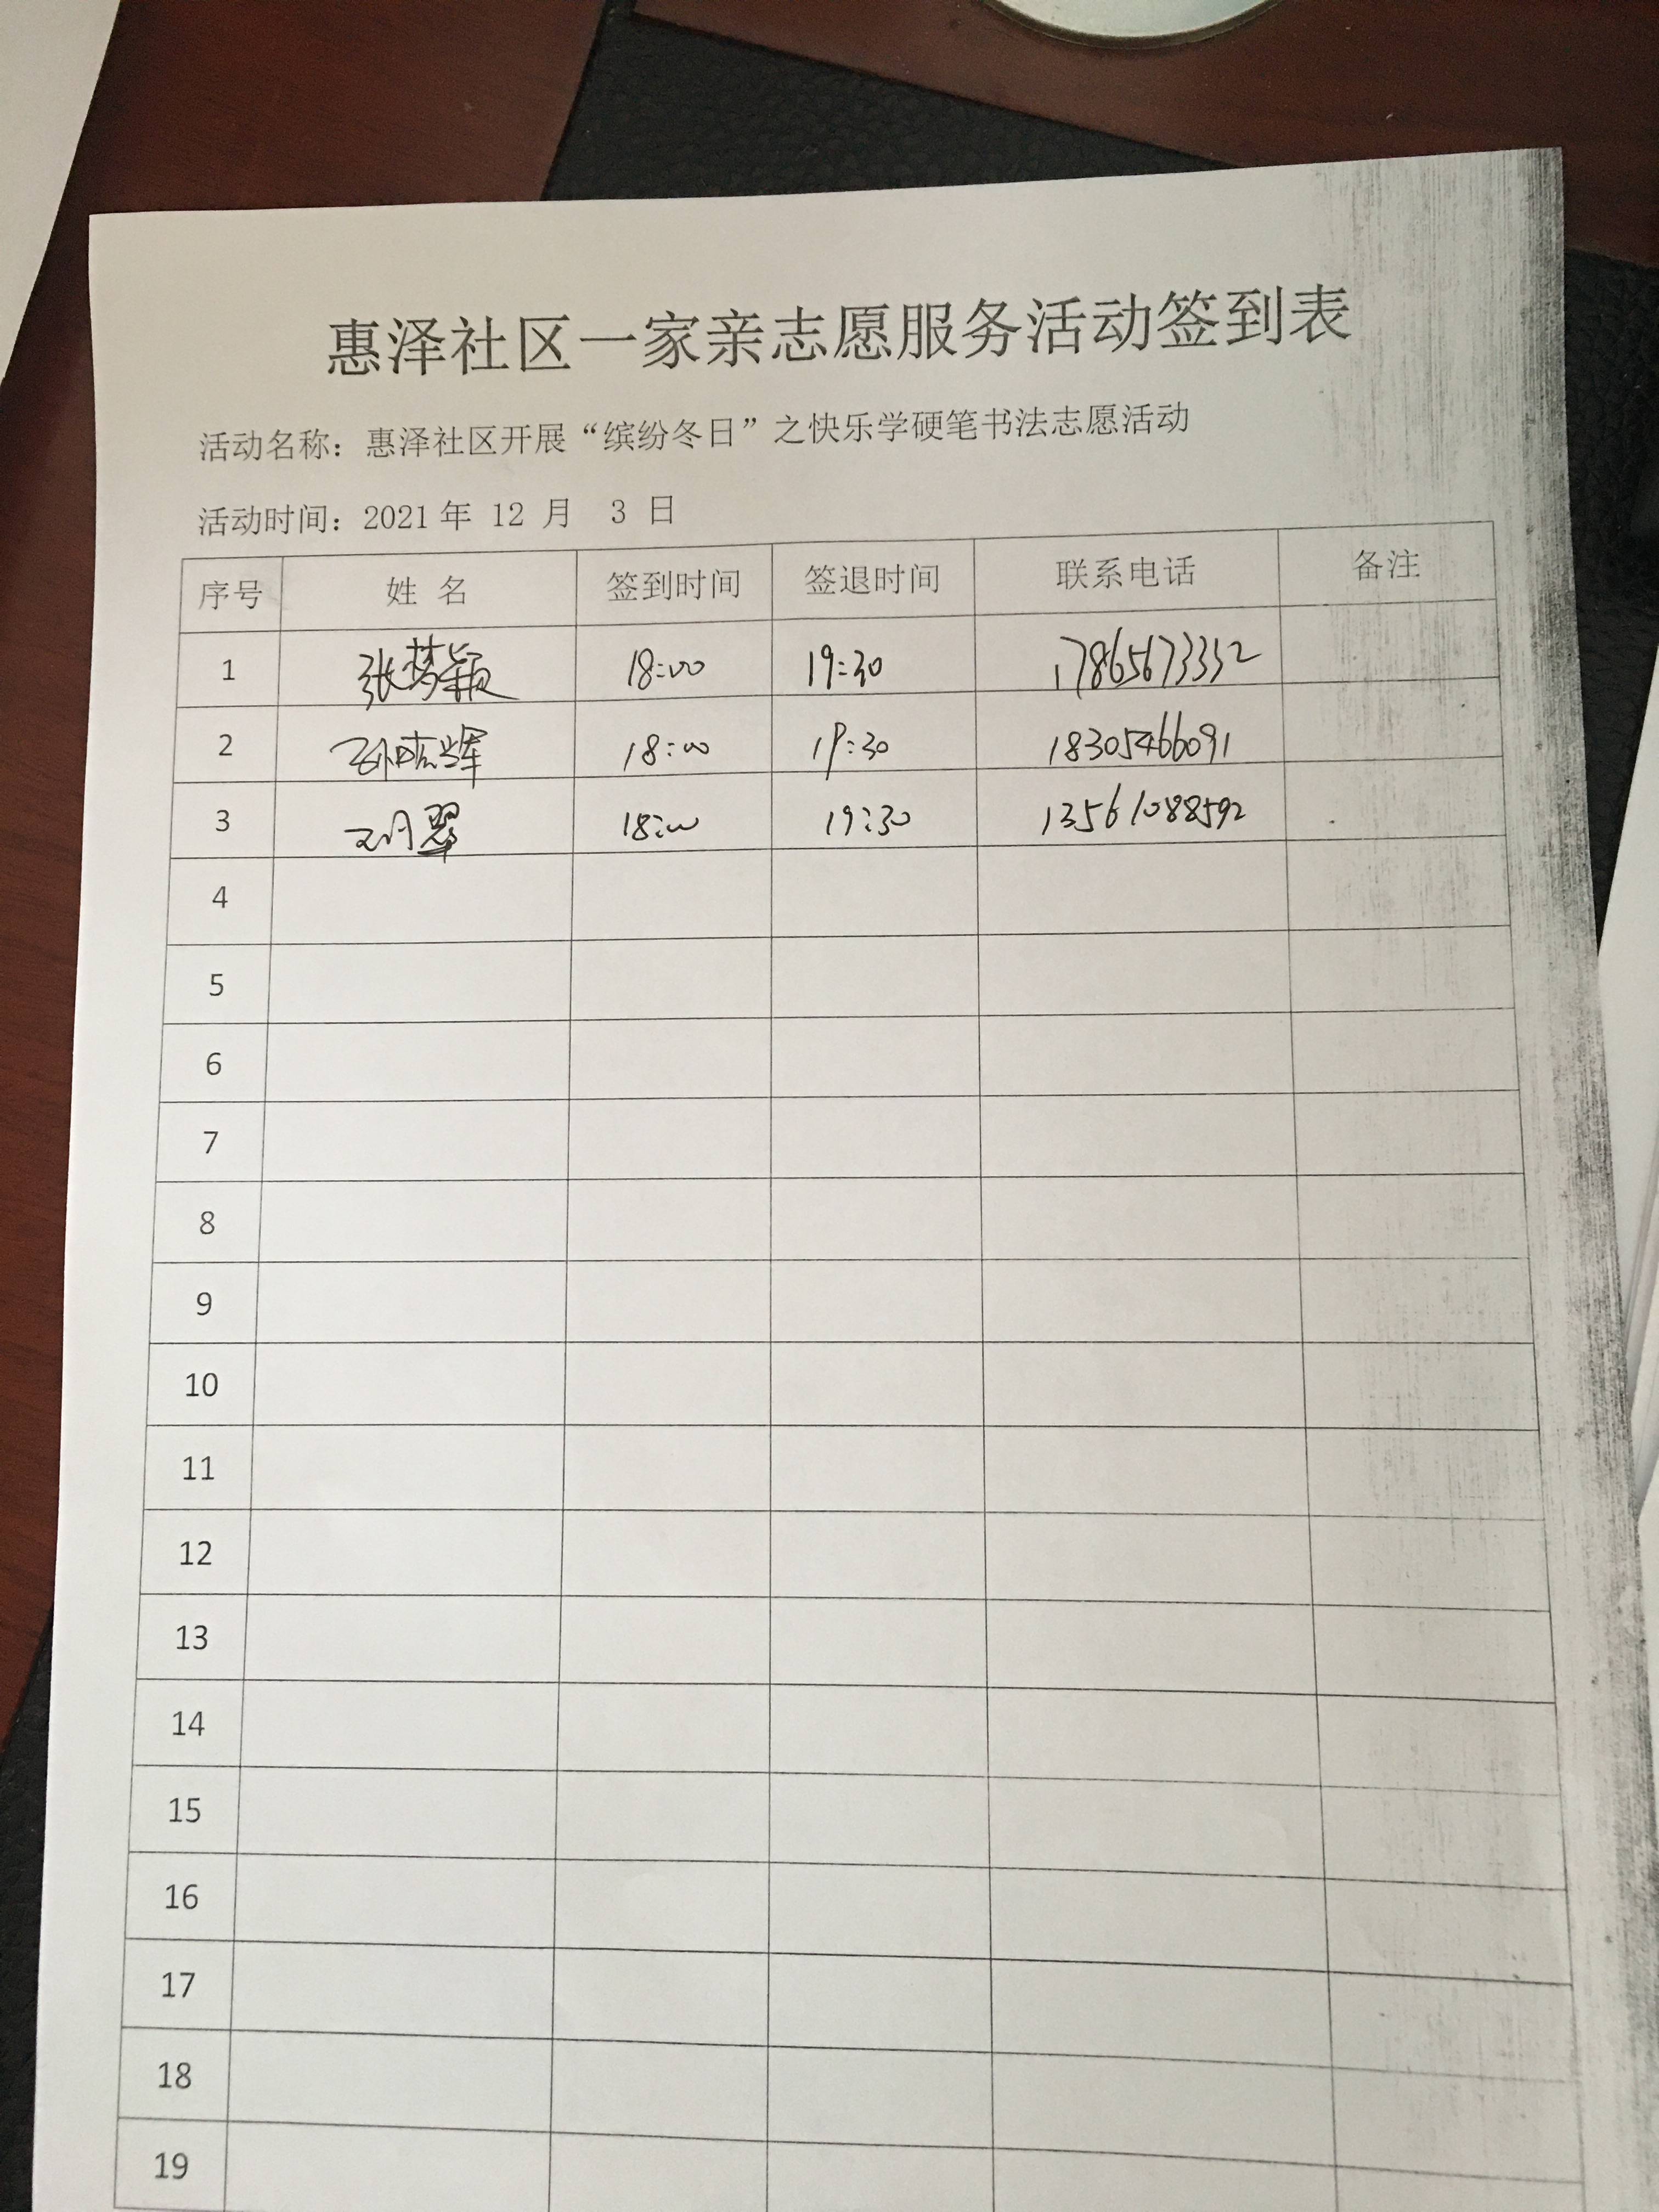 惠泽社区一家亲志愿服务活动签到表
活动名称：惠泽社区开展“缤纷冬日”之快乐学硬笔书法志愿活动
活动时间：2021年 12 月 3 日
序号 姓 名 签到时间 签退时间 联系电话 备注
1 张梦颖 18:00 19:30 17865673352
2 18:00 19:30 18305466091
3 18:00 19:30 13561088592
4
5
6
7
8
9
10
11
12
13
14
15
16
17
18
19